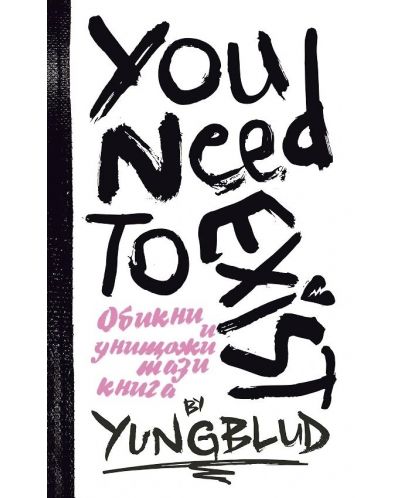 YOU
NEED
TO
EXIST
Обикни
и
унищожи
тази
книга
BY
YUNGBLUD